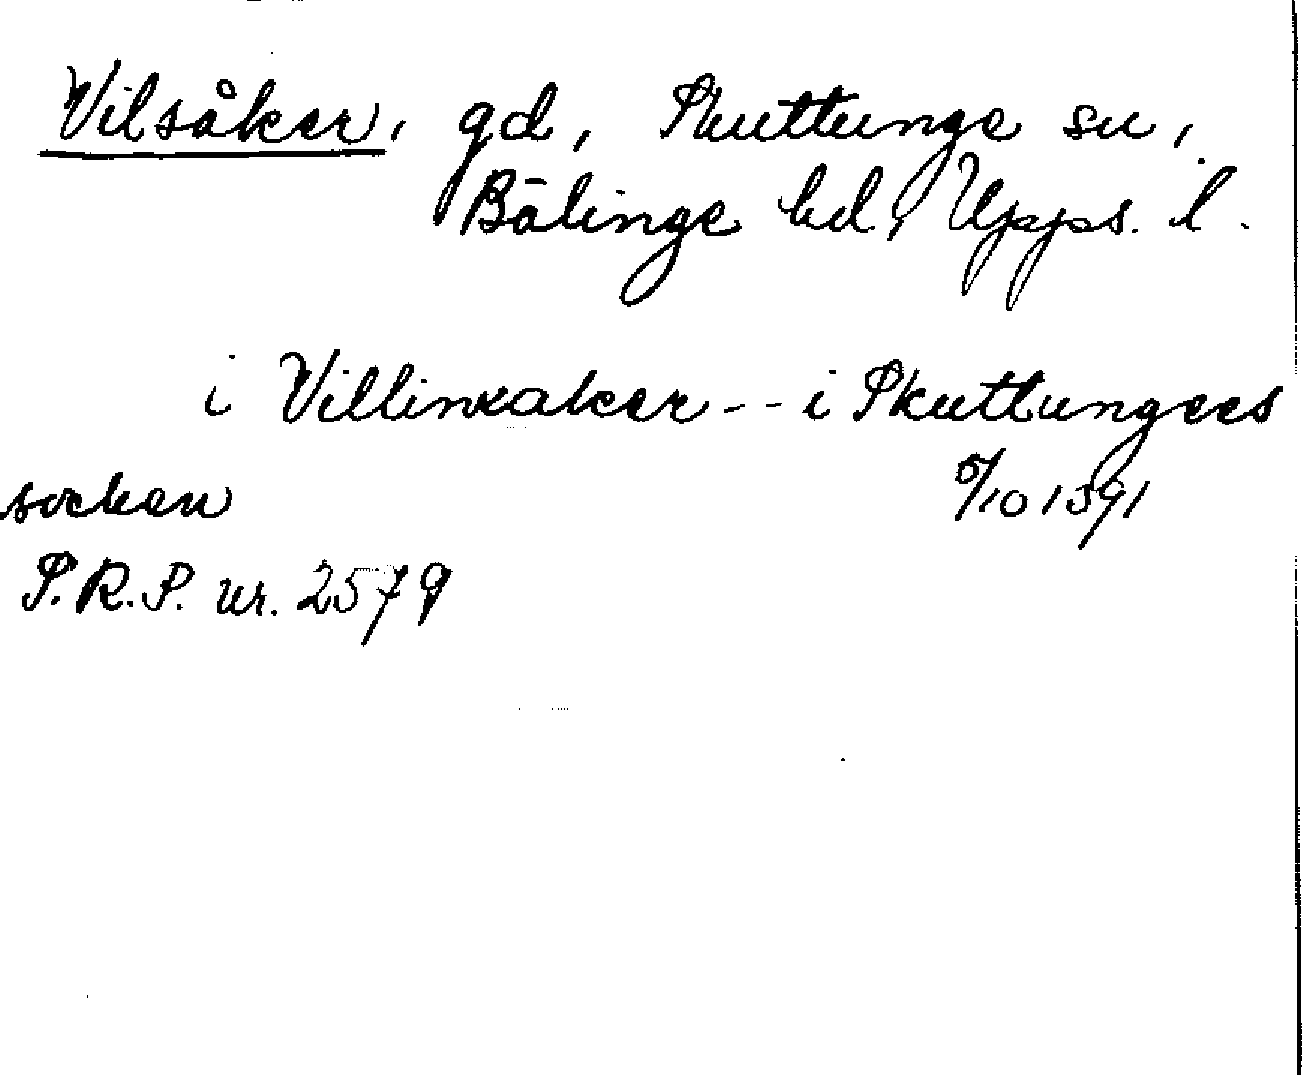 Vilsåker, gd, Skuttunge sn,
Bälinge hd, Upps. l.
i Villinxaker -- i Skuttungees
socken 6/10 1391
S.R.P. nr. 2579